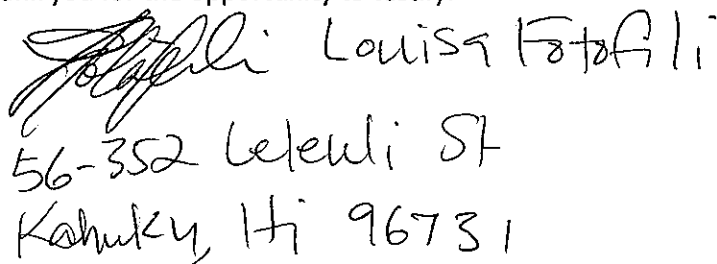 Louisa Fotofili
56-352 Leleuli St
Kahuku, Hi 96731